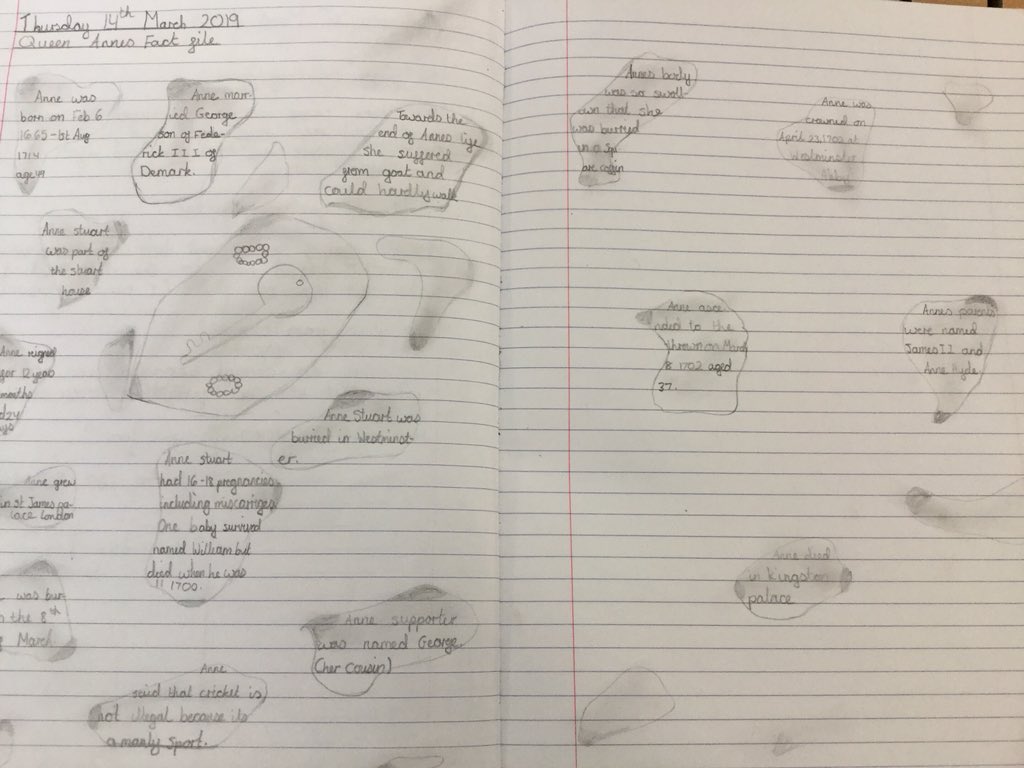 Thursday 14th March 2019
Queen Annes Fact file
Anne was
born on Feb 6
1665-1st Aug
1714
age 49
Anne mar-
ied George
son of Fede-
rick III of
Demark.
Towards the
end of Annes life
she suffered
from goat and
could hardly walk
Anne stuart
was part of
the stuart
house
Anne reigned
for 12 years
months
Anne Stuart was
burried in Westminst-
er.
Anne grew
in st James pa-
lace London
Anne stuart
had 16-18 pregnancies
including miscarriges
One baby survived
named William but
died when he was
11 1700.
was bur-
the 8th
March
Anne supporter
was named George
(her cousin)
Anne
said that cricket is
not illegal because its
a manly sport.
Annes body
was so swoll-
own that she
was burried
in a squ
are coffin
Anne was
crowned on
April 23, 1702 at
Westminster
Abbey
Anne asce
nded to the
thrown on March
8 1702 aged
37.
Annes parents
were named
James II and
Anne Hyde.
Anne died
in kingston
palace